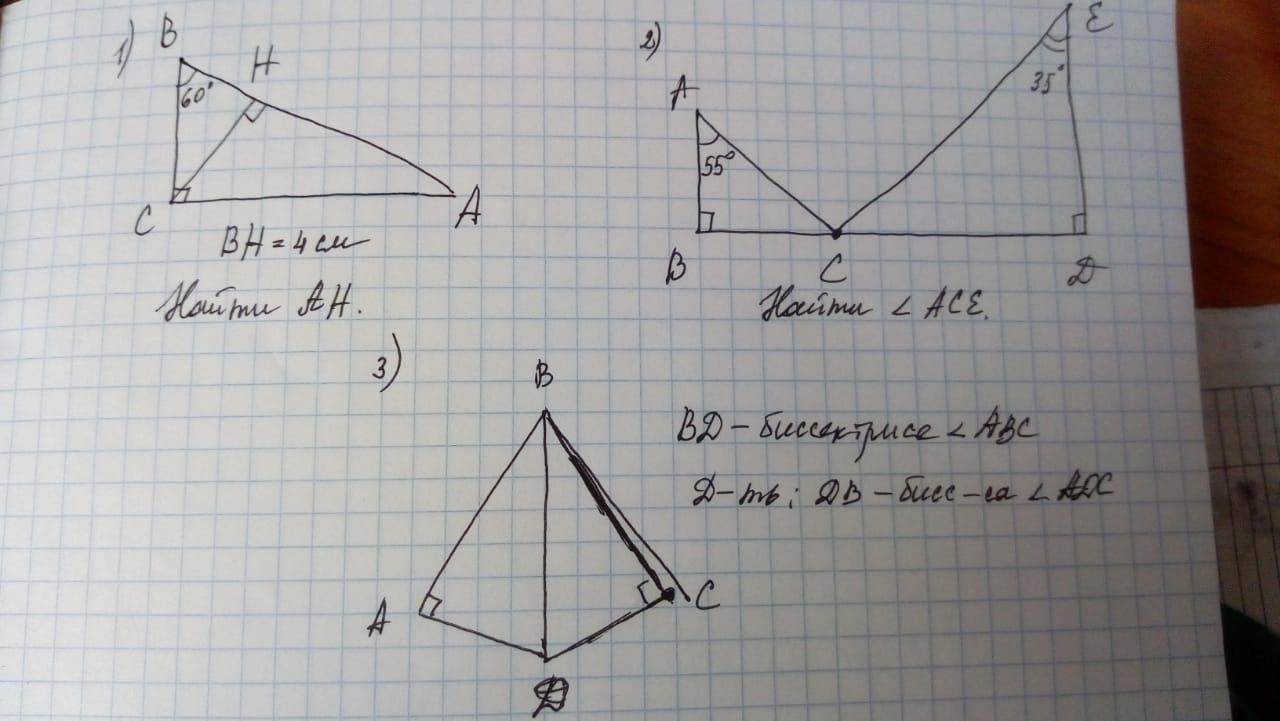 1)
B
H
60°
C
A
BH = 4 см
Найти AH.
2)
A
E
35°
55°
B
C
D
Найти < ACE.
3)
B
BD – биссектриса < ABC
D-ть: DB – бисс-са < ADC
A
C
D